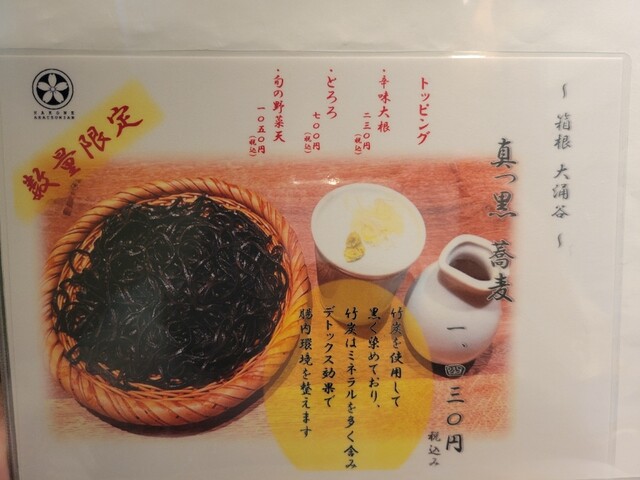 ～ 箱根 大涌谷 ～
真っ黒 蕎麦
三〇円
税込み
トッピング
・辛味大根
二三〇円(税込)
・とろろ
七〇〇円(税込)
・旬の野菜天
一〇五〇円(税込)
数量限定
竹炭を使用して
黒く染めており、
竹炭はミネラルを多く含み
デトックス効果で
腸内環境を整えます